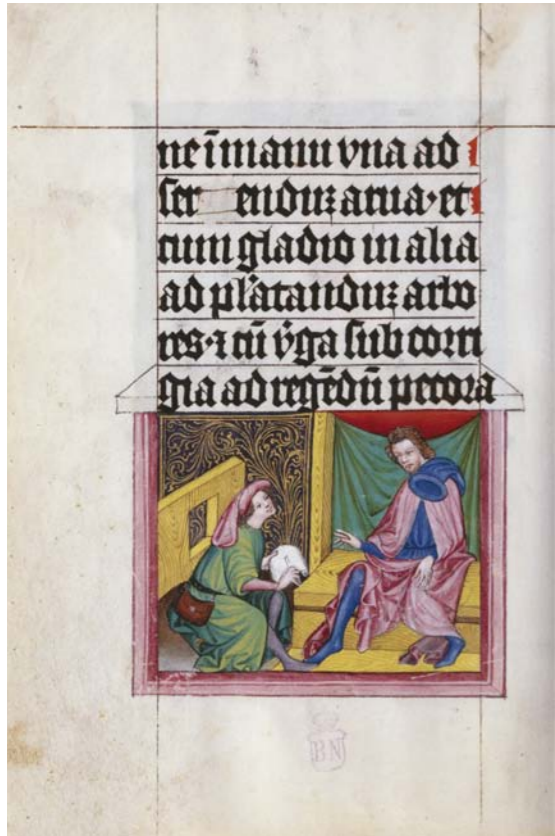 ne ī manu vna ad
ser enduꝫ arua·et
cum gladio in alia
ad plātanduꝫ arbo
res·⁊ cū v̾ga sub corri
gia ad regēdū pecora
BN